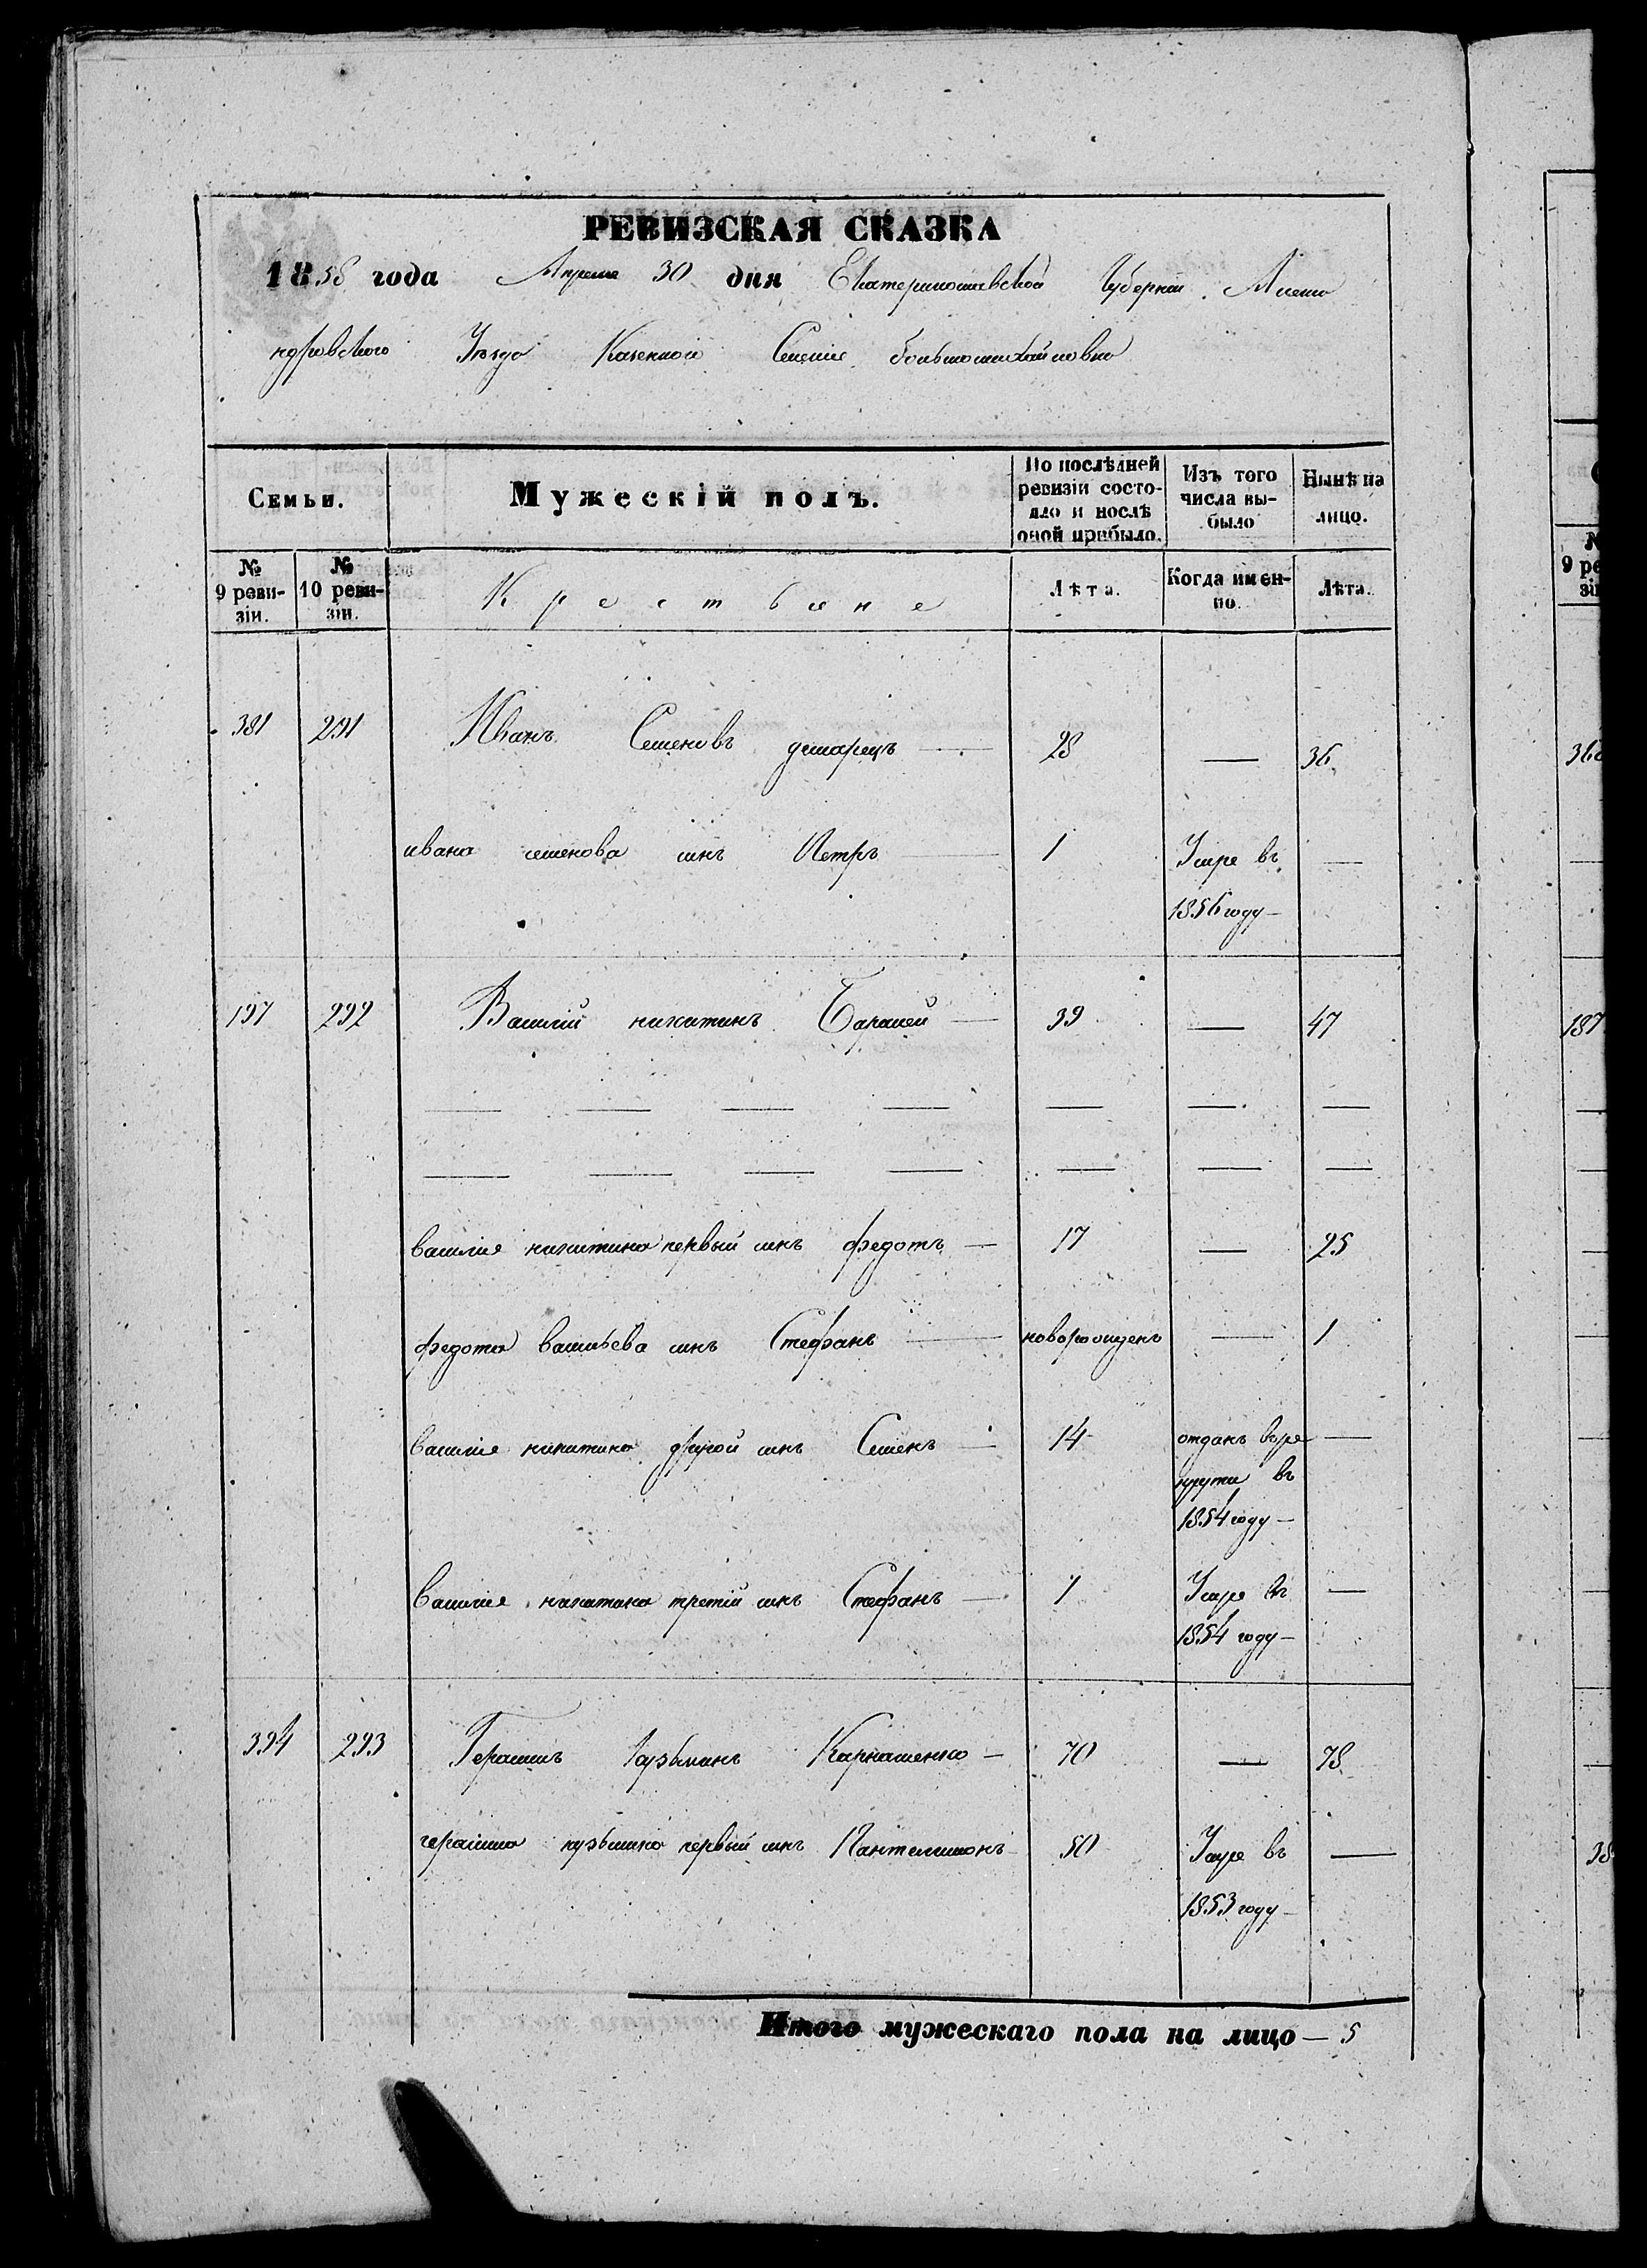 РЕВИЗСКАЯ СКАЗКА
1858 года Апреля 30 дня Екатеринославской Губерніи Алекса
ндровского Уезда Казенной Селеніе большомихайловка
Семьи.
Мужескій полъ.
По послѣдней ревизіи состояло и послѣ оной прибыло.
Изъ того числа выбыло
Нынѣ на лицо.
№ 9 ревизіи.
№ 10 ревизіи.
Крестьяне
Лѣта.
Когда именно.
Лѣта.
381 291 Иванъ Семеновъ — 28 — 36
ивана семенова синъ Петръ — 1 Умре въ —
1856 году —
197 292 Василій никитинъ — 39 — 47
василія никитина первый синъ федотъ — 17 — 25
федота васильева синъ Стефанъ — новорожденъ — 1
василія никитина другой синъ Семенъ — 14 отданъ въ ре —
круты въ
1854 году —
василія никитина третій синъ Стефанъ — 1 Умре въ —
1854 году —
394 293 Герасимъ Кузьминъ Карнашенко — 70 — 78
герасима кузьмина первый синъ Пантелимонъ 50 Умре въ —
1853 году —
Итого мужескаго пола на лицо — 5
360
187